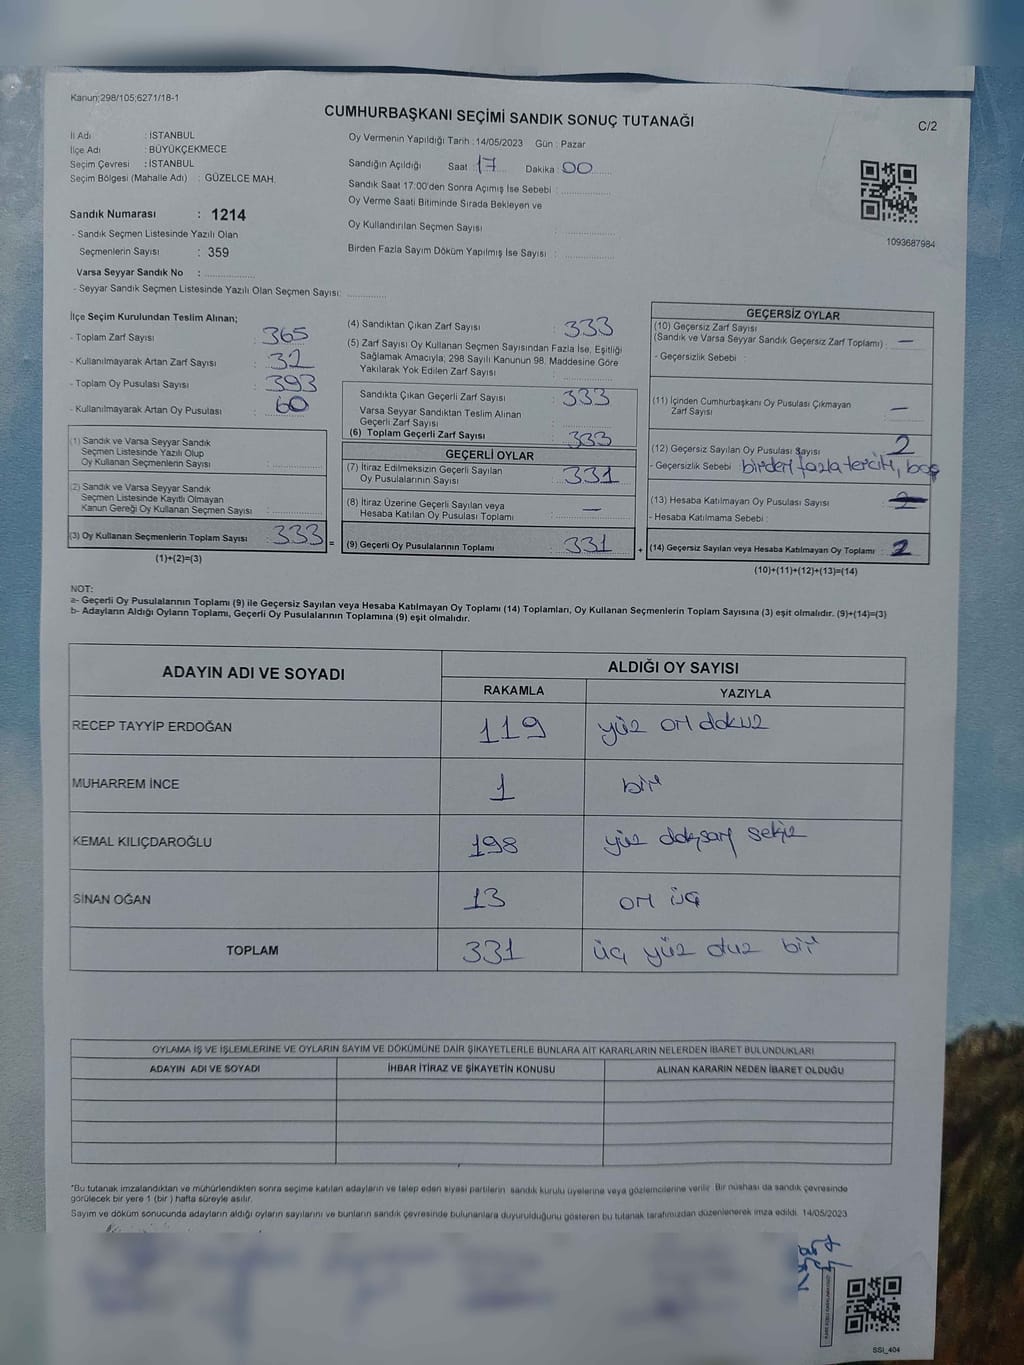 Kanun;298/105;6271/18-1
CUMHURBAŞKANI SEÇİMİ SANDIK SONUÇ TUTANAĞI
C/2
İl Adı : İSTANBUL
İlçe Adı : BÜYÜKÇEKMECE
Seçim Çevresi : İSTANBUL
Seçim Bölgesi (Mahalle Adı) : GÜZELCE MAH.
Oy Vermenin Yapıldığı Tarih : 14/05/2023 Gün : Pazar
Sandığın Açıldığı Saat : 17 Dakika : 00
Sandık Saat 17:00'den Sonra Açımış İse Sebebi :
Oy Verme Saati Bitiminde Sırada Bekleyen ve
Oy Kullandırılan Seçmen Sayısı :
Birden Fazla Sayım Döküm Yapılmış İse Sayısı :
1093687984
Sandık Numarası : 1214
- Sandık Seçmen Listesinde Yazılı Olan
Seçmenlerin Sayısı : 359
Varsa Seyyar Sandık No :
- Seyyar Sandık Seçmen Listesinde Yazılı Olan Seçmen Sayısı:
İlçe Seçim Kurulundan Teslim Alınan;
- Toplam Zarf Sayısı : 365
- Kullanılmayarak Artan Zarf Sayısı : 32
- Toplam Oy Pusulası Sayısı : 393
- Kullanılmayarak Artan Oy Pusulası : 60
(1) Sandık ve Varsa Seyyar Sandık
Seçmen Listesinde Yazılı Olup
Oy Kullanan Seçmenlerin Sayısı :
(2) Sandık ve Varsa Seyyar Sandık
Seçmen Listesinde Kayıtlı Olmayan
Kanun Gereği Oy Kullanan Seçmen Sayısı :
(3) Oy Kullanan Seçmenlerin Toplam Sayısı : 333 =
(1)+(2)=(3)
(4) Sandıktan Çıkan Zarf Sayısı : 333
(5) Zarf Sayısı Oy Kullanan Seçmen Sayısından Fazla İse, Eşitliği
Sağlamak Amacıyla; 298 Sayılı Kanunun 98. Maddesine Göre
Yakılarak Yok Edilen Zarf Sayısı :
Sandıkta Çıkan Geçerli Zarf Sayısı : 333
Varsa Seyyar Sandıktan Teslim Alınan
Geçerli Zarf Sayısı :
(6) Toplam Geçerli Zarf Sayısı : 333
GEÇERLİ OYLAR
(7) İtiraz Edilmeksizin Geçerli Sayılan
Oy Pusulalarının Sayısı : 331
(8) İtiraz Üzerine Geçerli Sayılan veya
Hesaba Katılan Oy Pusulası Toplamı : —
(9) Geçerli Oy Pusulalarının Toplamı : 331 +
GEÇERSİZ OYLAR
(10) Geçersiz Zarf Sayısı
(Sandık ve Varsa Seyyar Sandık Geçersiz Zarf Toplamı) : —
- Geçersizlik Sebebi :
(11) İçinden Cumhurbaşkanı Oy Pusulası Çıkmayan
Zarf Sayısı : —
(12) Geçersiz Sayılan Oy Pusulası Sayısı : 2
- Geçersizlik Sebebi : birden fazla tercih, boş
(13) Hesaba Katılmayan Oy Pusulası Sayısı :
- Hesaba Katılmama Sebebi :
(14) Geçersiz Sayılan veya Hesaba Katılmayan Oy Toplamı : 2
(10)+(11)+(12)+(13)=(14)
NOT:
a- Geçerli Oy Pusulalarının Toplamı (9) ile Geçersiz Sayılan veya Hesaba Katılmayan Oy Toplamı (14) Toplamları, Oy Kullanan Seçmenlerin Toplam Sayısına (3) eşit olmalıdır. (9)+(14)=(3)
b- Adayların Aldığı Oyların Toplamı, Geçerli Oy Pusulalarının Toplamına (9) eşit olmalıdır.
ADAYIN ADI VE SOYADI
ALDIĞI OY SAYISI
RAKAMLA YAZIYLA
RECEP TAYYİP ERDOĞAN 119 yüz on dokuz
MUHARREM İNCE 1 bir
KEMAL KILIÇDAROĞLU 198 yüz doksan sekiz
SİNAN OĞAN 13 on üç
TOPLAM 331 üç yüz otuz bir
OYLAMA İŞ VE İŞLEMLERİNE VE OYLARIN SAYIM VE DÖKÜMÜNE DAİR ŞİKAYETLERLE BUNLARA AİT KARARLARIN NELERDEN İBARET BULUNDUKLARI
ADAYIN ADI VE SOYADI İHBAR İTİRAZ VE ŞİKAYETİN KONUSU ALINAN KARARIN NEDEN İBARET OLDUĞU
*Bu tutanak imzalandıktan ve mühürlendikten sonra seçime katılan adayların ve talep eden siyasi partilerin sandık kurulu üyelerine veya gözlemcilerine verilir. Bir nüshası da sandık çevresinde
görülecek bir yere 1 (bir) hafta süreyle asılır.
Sayım ve döküm sonucunda adayların aldığı oyların sayılarını ve bunların sandık çevresinde bulunanlara duyurulduğunu gösteren bu tutanak tarafımızdan düzenlenerek imza edildi. 14/05/2023
SSI_404